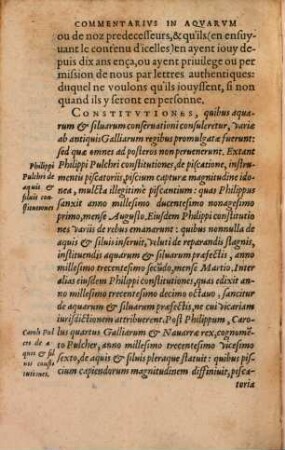 COMMENTARIVS IN AQVARVM
ou de noz predecesseurs, & qu'ils (en ensuy-
uant le contenu d'icelles) en ayent iouy de-
puis dix ans ença, ou ayent priuilege ou per
mission de nous par lettres authentiques:
duquel ne voulons qu'ils iouyssent, si non
quand ils y seront en personne.
CONSTITVTIONES, quibus aqua-
rum & siluarum conseruationi consuleretur, varie
ab antiquis Galliarum regibus promulgatæ fuerunt:
sed quæ omnes ad posteros non peruenerunt. Extant
Philippi Pulchri constitutiones, de piscatione, instru-
mentis piscatoriis, piscium capturæ magnitudine ido
nea, mulcta illegitimè piscantium: quas Philippus
sanxit anno millesimo ducentesimo nonagesimo
primo, mense Augusto. Eiusdem Philippi constitutio
nes variis de rebus emanarunt: quibus nonnulla de
aquis & siluis inseruit, veluti de reparandis stagnis,
instituendis aquarum & siluarum præfectis, anno
millesimo trecentesimo secūdo, mense Martio. Inter
alias eiusdem Philippi constitutiones, quas edixit an-
no millesimo trecentesimo decimo octauo, sancitur
de aquarum & siluarum præfectis, ne cui vicariam
iurisdictionem attribuerent. Post Philippum, Caro-
lus quartus Galliarum & Nauarræ rex, cognomē-
to Pulcher, anno millesimo trecentesimo vicesimo
sexto, de aquis & siluis pleraque statuit: quibus pis
cium capiendorum magnitudinem diffiniuit, pisca-
toria
Philippi
Pulchri de
aquis &
siluis con-
stitutiones
Caroli Pul
chri de a-
quis & sil
uis consti-
tutiones.